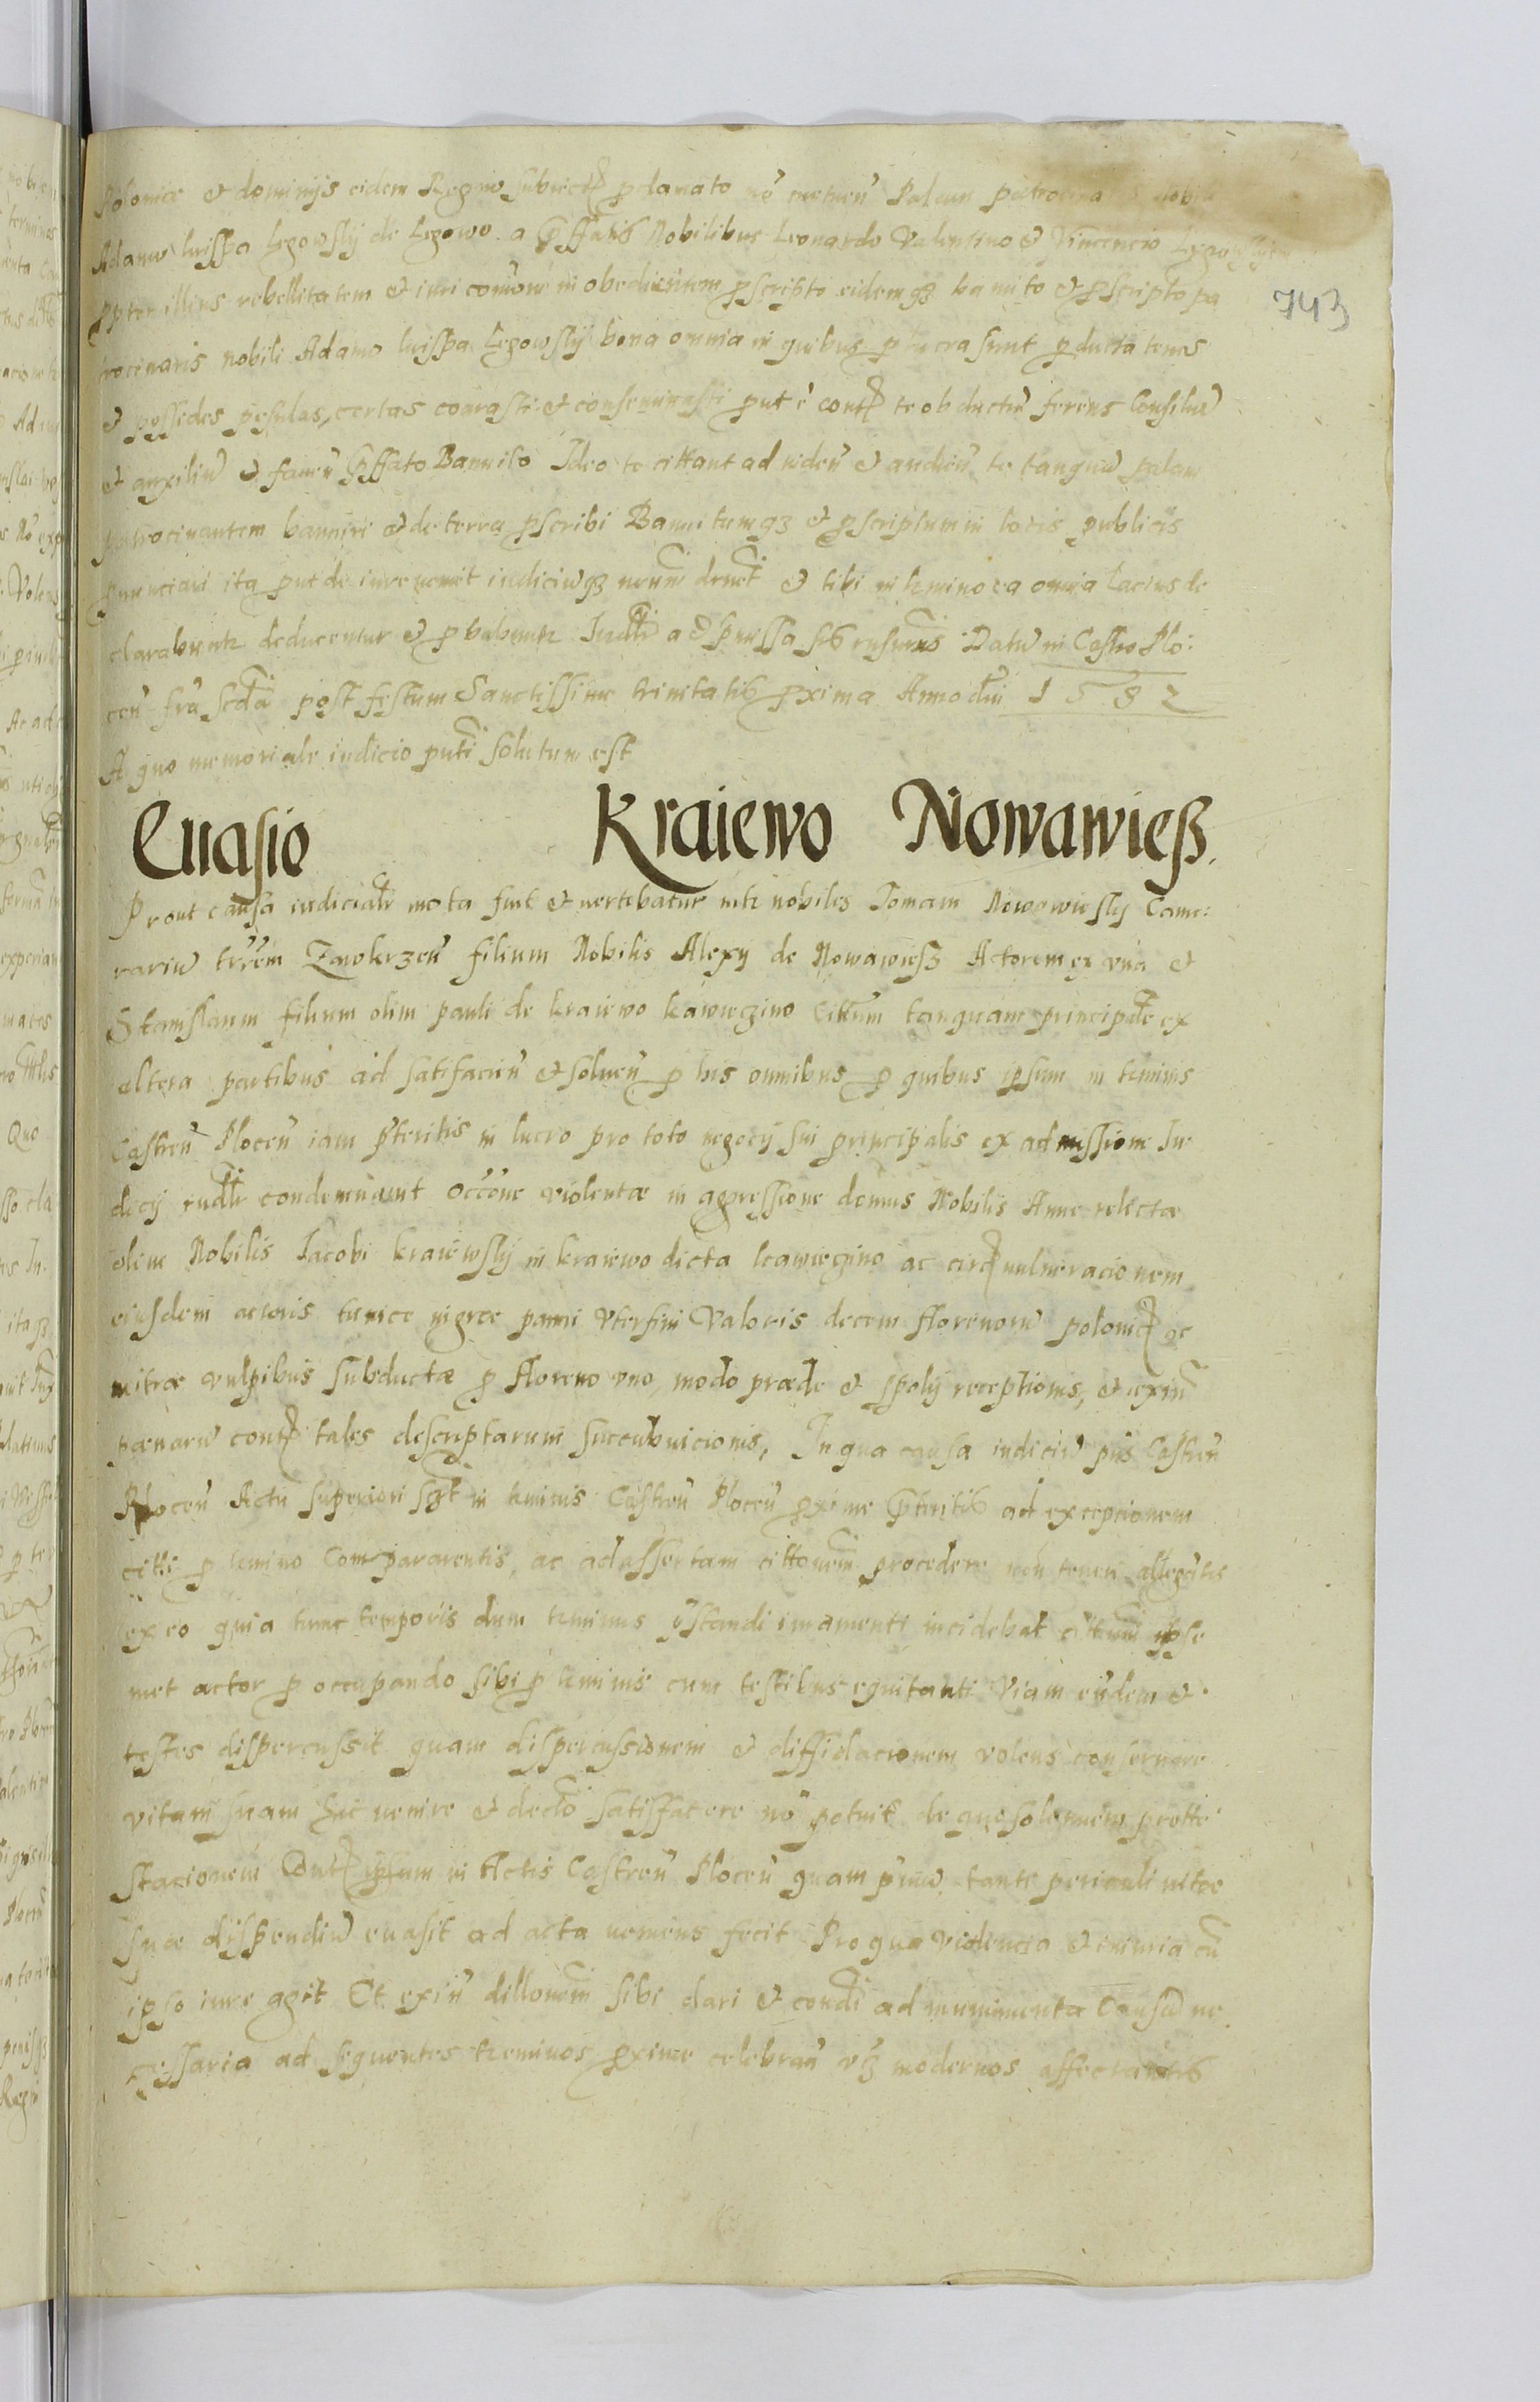 Polonice et dominijs eidem Regno subiect proclamato no metuen Palam patrocinaris nobili
Adamo luispa Legowsky de Legowo a pffatis Nobilibus Leonardo Valentino et Vincencio Legowskyem
ppter illius rebellitatem et iuri comoni in obedientem pscripto eidemq3 banito et pscripto pa
trocinaris nobili Adamo luispa Legowsky bona omnia in quibus p lucra sunt pducta tenes
et possedes pesulas, certas coarasti et conseminasti put e cont te obductu ferens Consiliu
et auxiliu et fauen pffato Bannito Ideo te cittant ad viden et audien te tanquam palam
patrocinantem banniri et de terra pscribi Bannitumq3 et pscriptum in locis publicis
pnunciari ita put de iure venerit iudiciuq3 nrum decret et tibi in termino ea omnia lacius de
clarabuntr deducentur et pbabuntr Iudtr a pmissa sb rnsurus Datu in Castro Plo:
cen fra scda post festum Sanctissime trinitatis pxima Anno dni 1582
A quo memoriale iudicio puti solutum est
Euasio Kraiewo Nowawiesz.
Prout causa iudicialr mota fuit et vertebatur intr nobiles Tomam Nowowiesky Came:
rariu trrem Zawkrzen filium Nobilis Alexy de Nowawiesz Actorem ex vna et
Stanislaum filium olim pauli de kraiewo kawieczino Cittum tanquam principale ex
altera partibus ad satisfacien et soluen p his omnibus p quibus ipsum in terminis
Castren Plocen iam pteritis in lucro pro toto negocij sui principalis ex admissione Iu
dicij iudtr condemnauit occone violentæ in agressione domus Nobilis Anne relictæ
olim Nobilis Iacobi kraiewsky in kraiewo dicta kawieczino ac circ vulneracionem
eiusdem actoris tunice nigræ panni vterfini Valoris decem florenoru polonic ac
mitræ vulpibus subductæ p floreno vno, modo præde et spolij receptionis, et exin
pænaru cont tales descriptarum succubuicionis, In qua causa iudiciu pns Castren
Plocen Actu superiori sct in terminis Castren Plocen pxime pteritis ad excepcionem
citti p termino Comparaentis, ac ad assertam cittonem procedere non teneri allegatis
ex eo quia tunc temporis dum terminus pstandi iuramenti incidebat cittum ipse
met actor p occupando sibi p terminis cum testibus equitanti Viam eudem et
testes dispercussit quam dispercussionem et diffidacionem volens conseruare
vitam suam huc venire et decto satisfacere no potuit de quo solennem protte
stacionem Cont ipsum in Actis Castren Plocen quam primu tante periculi vitæ
suæ dispendiu euasit ad acta veniens fecit Pro qua violencia et iniuria cu
ipso iure agit Et exin dillonem sibi dari et condi ad munimenta Causæ ne
cessaria ad sequentes terminos pxime celebran v3 modernos affectantis
743